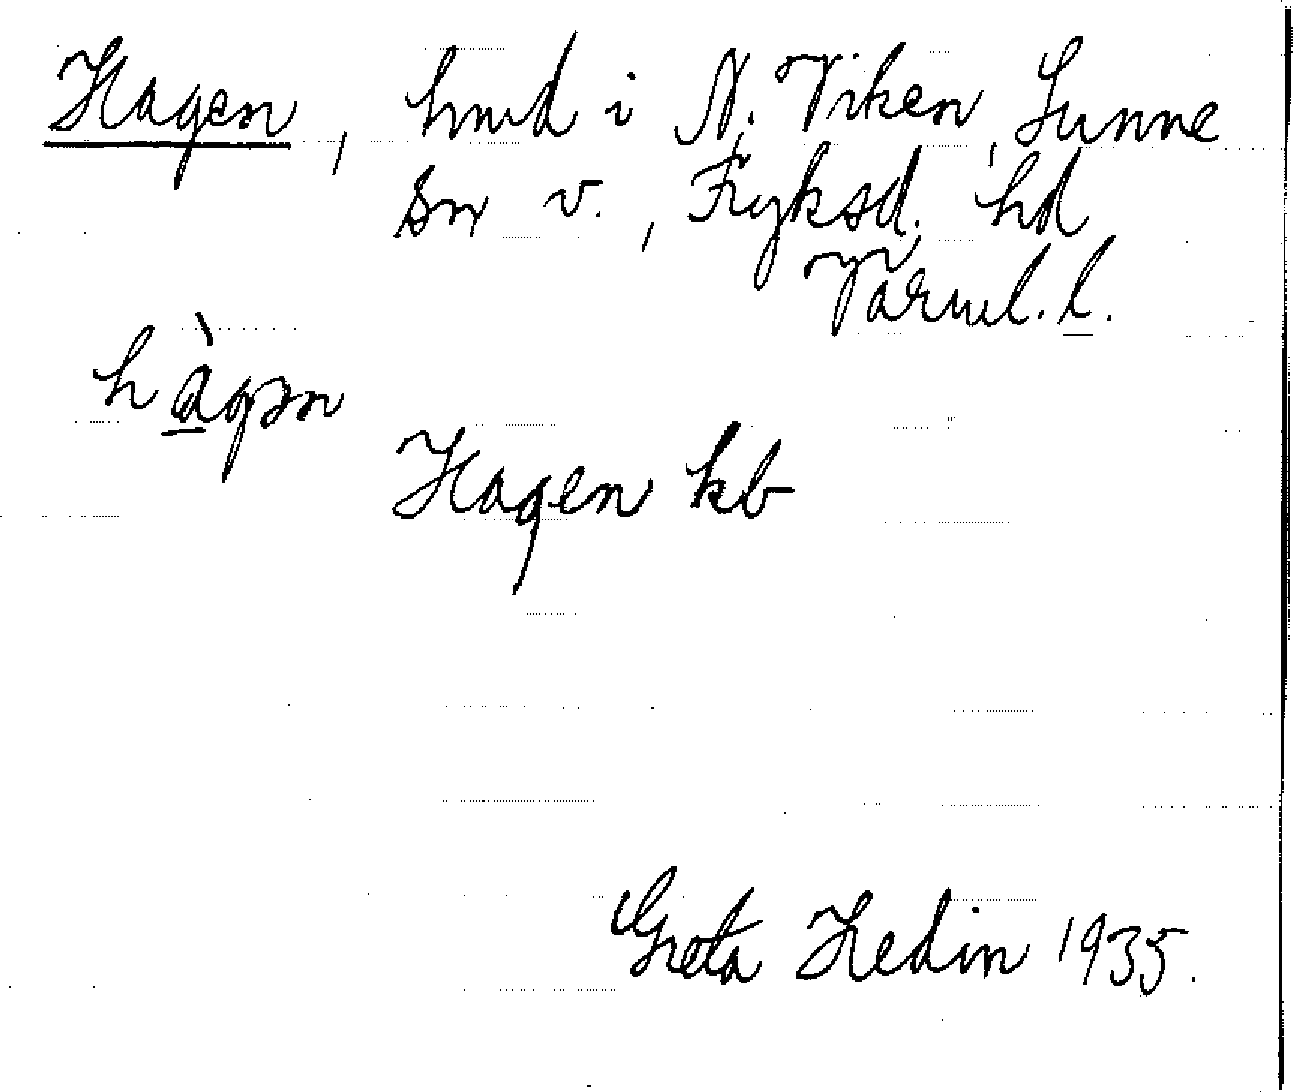 Hagen, hmd i N. Viken, Sunne
sn v., Fryksd. hd
Värml. l.
hàgən
Hagen kb
Greta Hedin 1935.